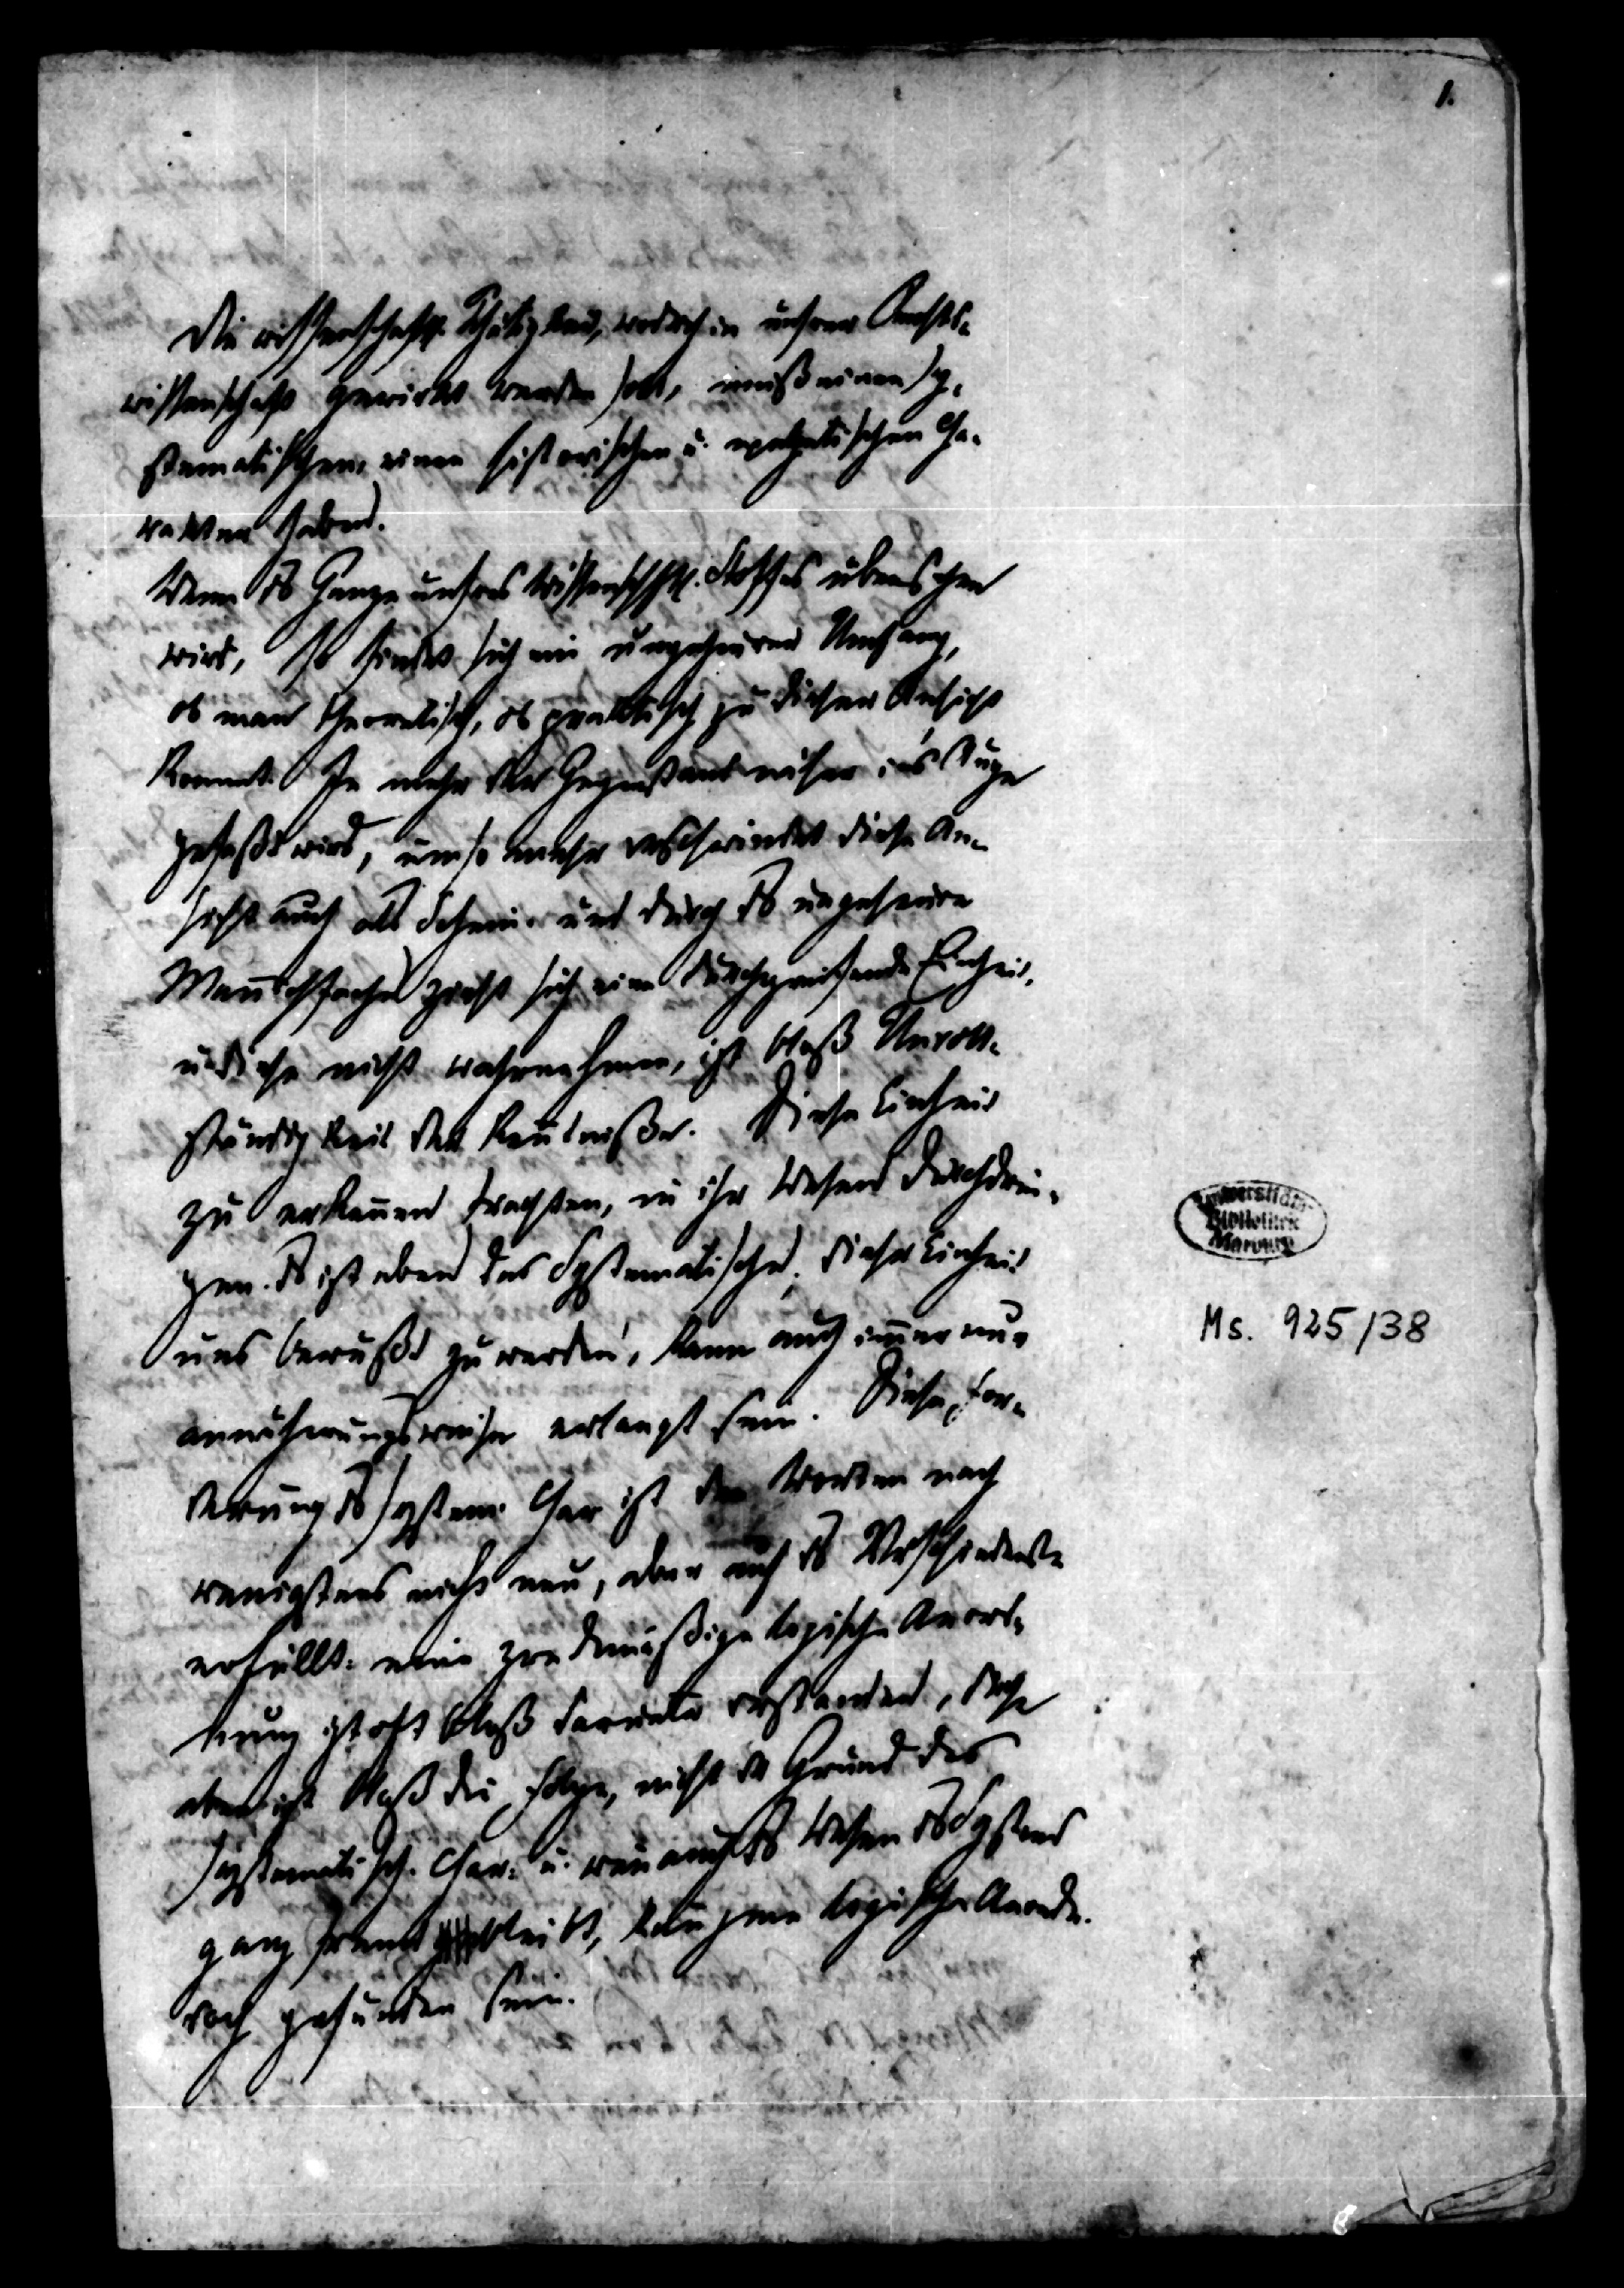 1.
Die wissenschaftl. Thätigkeit, wodurch in unsrer Rechts-
wissenschaft gewirkt werden soll, muß einen sy-
stematischen, einen historischen u. exegetischen Cha-
rakter haben.
Wenn ds Ganze unsres wissenschftl. Stoffes übersehen
wird, so findet sich ein ungeheurer Umfang,
ob man theoretisch, ob praktisch zu dieser Ansicht
kommt. Je mehr der Gegenstand näher ins Auge
gefaßt wird, umso mehr verschwindet diese An-
sicht auch als Schein. und durch ds ungeheure
Mannichfache zieht sich eine durchgreifende Einheit,
u. diese nicht wahrnehmen, ist bloß Unvoll-
ständigkeit der Kentniße. Diese Einheit
zu erkennen trachten, in ihr Wesen durchdrin-
gen. ds ist eben das Systematische, dieser Einheit
uns bewußt zu werden, kann auch immer nur
annäherungsweise erlangt sein. Diese For-
derung ds system. Char ist den Worten nach
wenigstens nicht neu, aber auf ds Verschiedenste
erfüllt: eine zweckmäßige logische Anord-
nung ist oft bloß darunter verstanden, diese
aber ist bloß die Folge, nicht der Grund des
systematisch. Char. u. wenn auch ds Wesen ds Systems
ganz fremd bleibt, kann jene logische Anordn.
doch gefunden sein.
Universitäts
Bibliothek
Marburg
Ms. 925/38